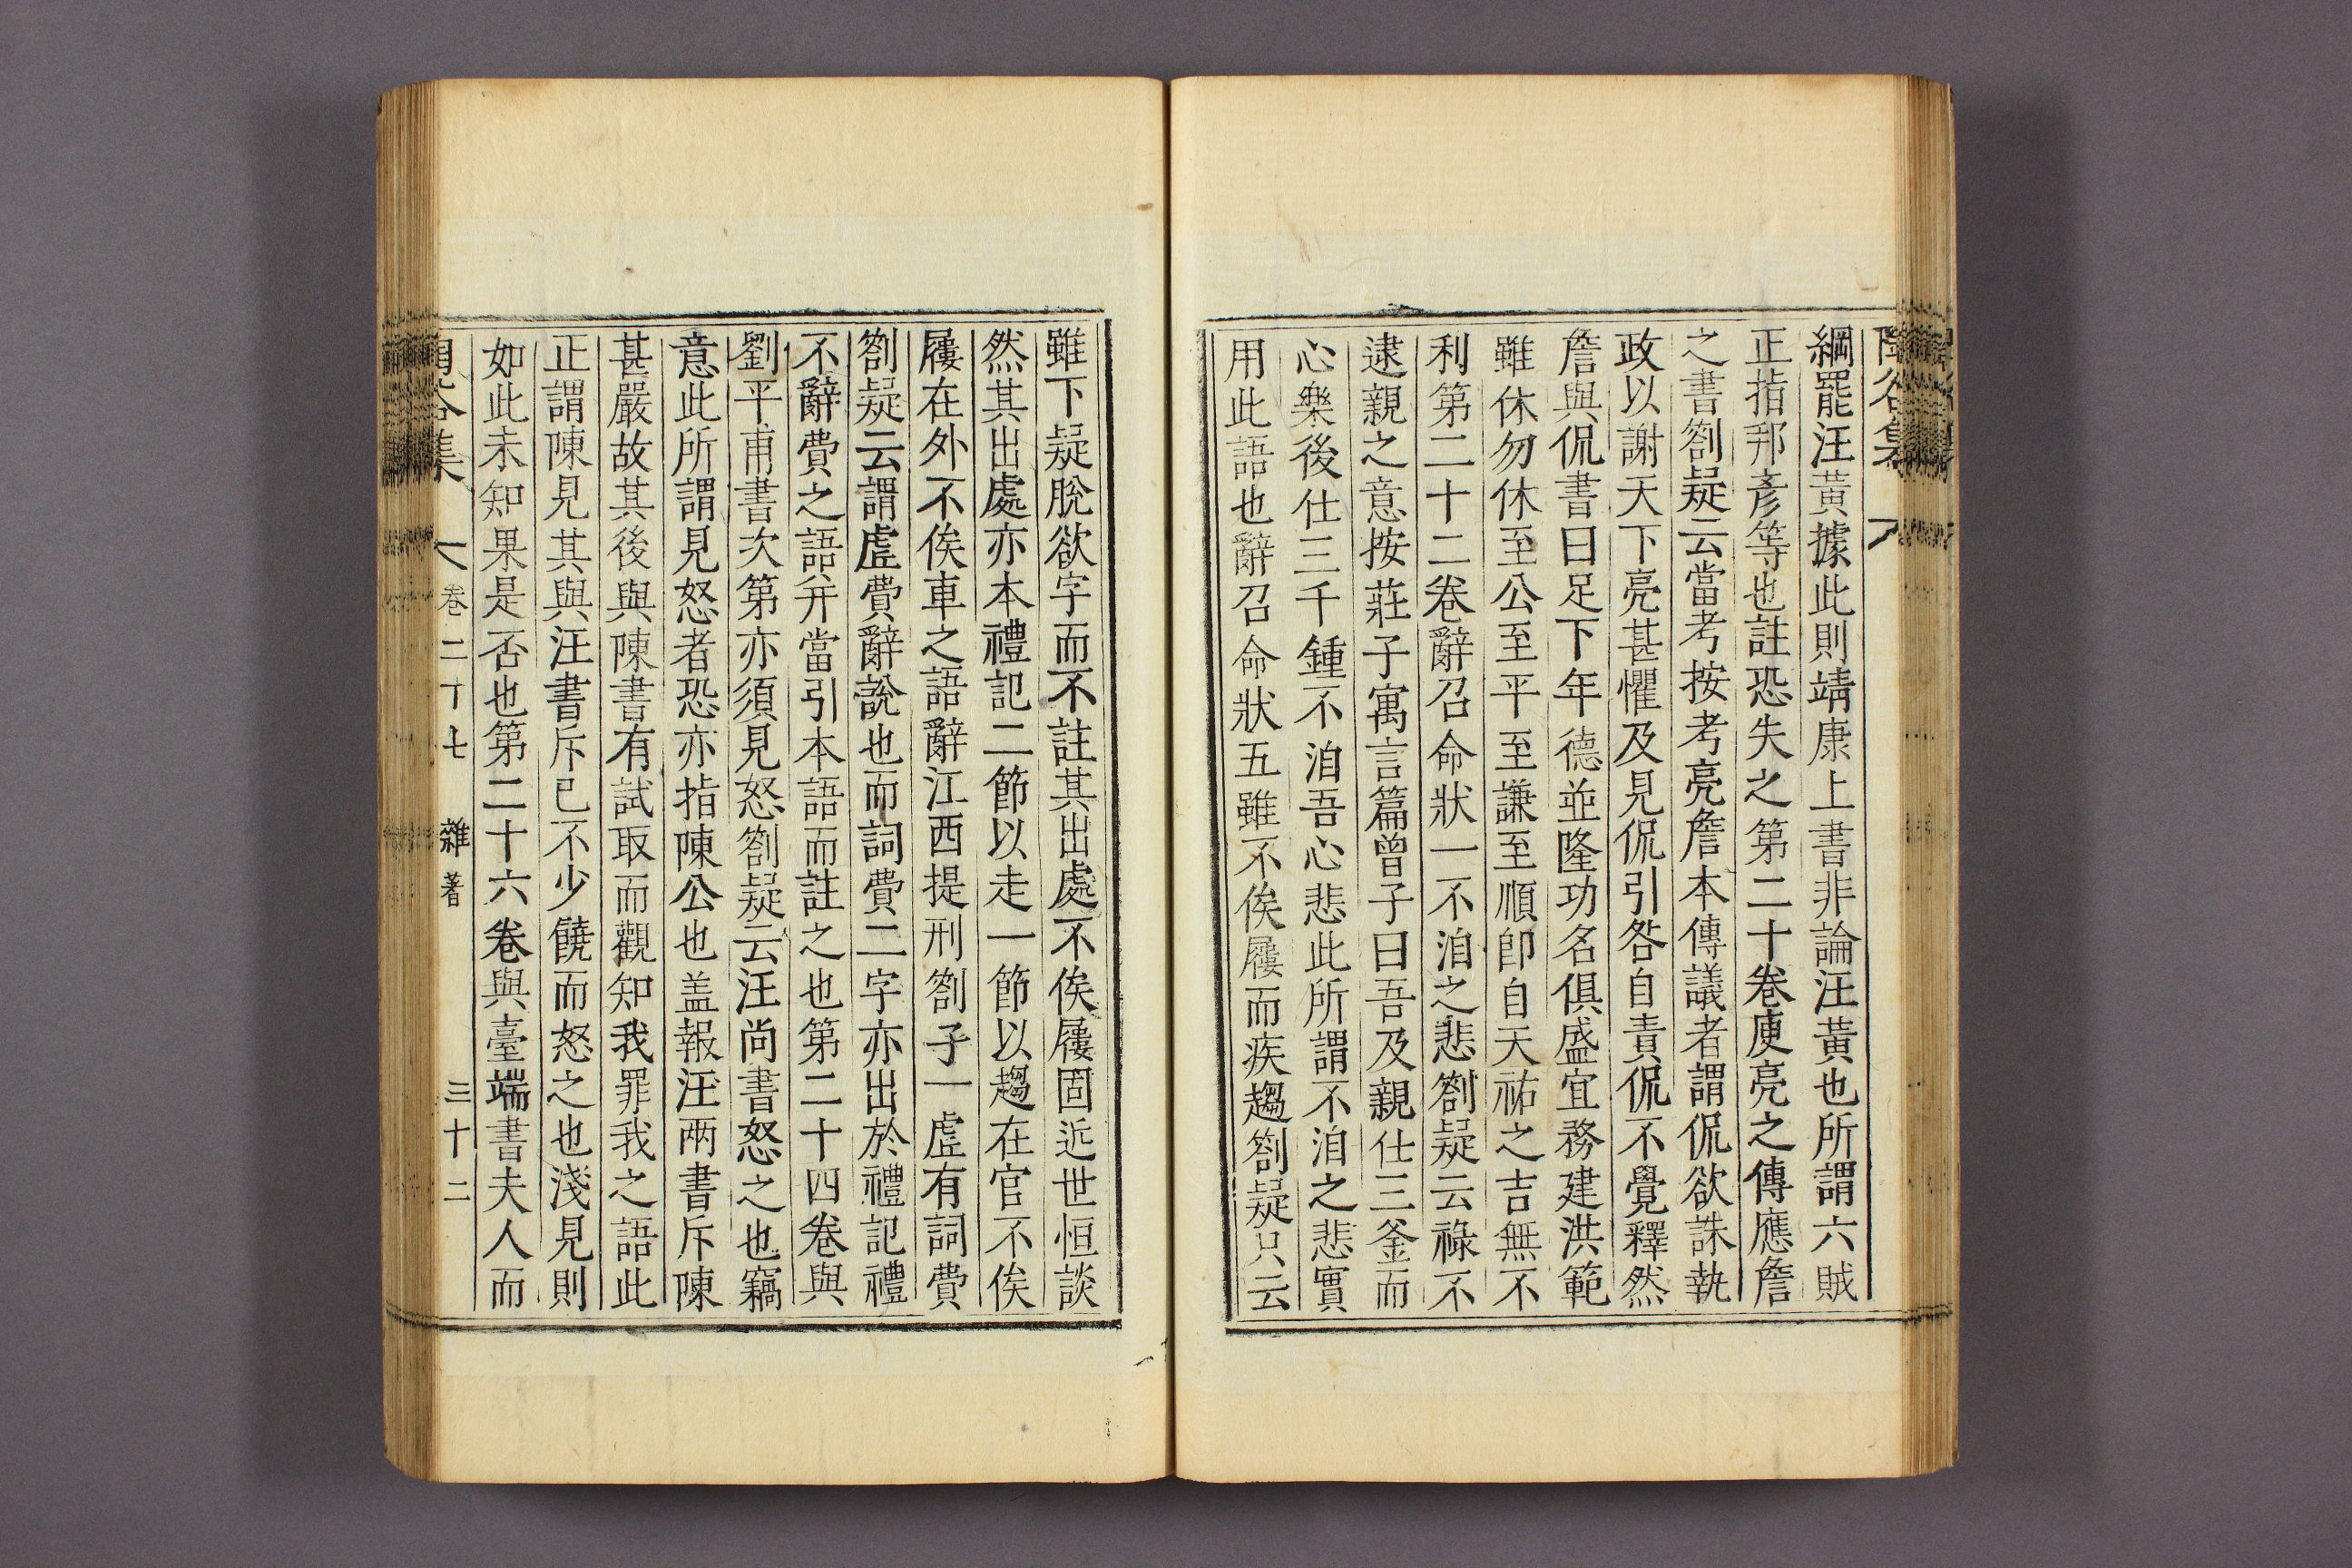 綱罷汪黃據此則靖康上書非論汪黃也所謂六賊
正指邦彥等也註恐失之第二十卷庾亮之傳應詹
之書劄疑云當考按考亮詹本傳議者謂侃欲誅執
政以謝天下亮甚懼及見侃引咎自責侃不覺釋然
詹與侃書曰足下年德並隆功名俱盛宜務建洪範
雖休勿休至公至平至謙至順卽自天祐之吉無不
利第二十二卷辭召命狀一不洎之悲劄疑云祿不
逮親之意按莊子寓言篇曾子曰吾及親仕三釜而
心樂後仕三千鍾不洎吾心悲此所謂不洎之悲實
用此語也辭召命狀五雖不俟屨而疾趨劄疑只云
雖下疑脫欲字而不註其出處不俟屨固近世恒談
然其出處亦本禮記二節以走一節以趨在官不俟
屨在外不俟車之語辭江西提刑劄子一虛有詞費
劄疑云謂虛費辭說也而詞費二字亦出於禮記禮
不辭費之語幷當引本語而註之也第二十四卷與
劉平甫書次第亦須見怒劄疑云汪尚書怒之也竊
意此所謂見怒者恐亦指陳公也盖報汪兩書斥陳
甚嚴故其後與陳書有試取而觀知我罪我之語此
正謂陳見其與汪書斥已不少饒而怒之也淺見則
如此未知果是否也第二十六卷與臺端書夫人而
卷二十七 雜著 三十二